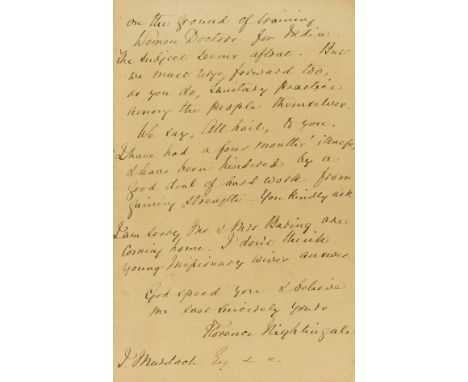 on the ground of training
Women Doctors for India.
The subject seems afloat. But
we must urge forward too,
as you do, Sanitary Practice
among the people themselves
We say, All hail, to you.
I have had a four months' illness,
& have been hindered by a
good deal of hard work from
gaining strength. You kindly ask
I am sorry Mr. & Mrs Baring are
coming home. I don't think
young Missionary wives answer.
God speed you & believe
me ever sincerely yours
Florence Nightingale
J. Murdoch Esq